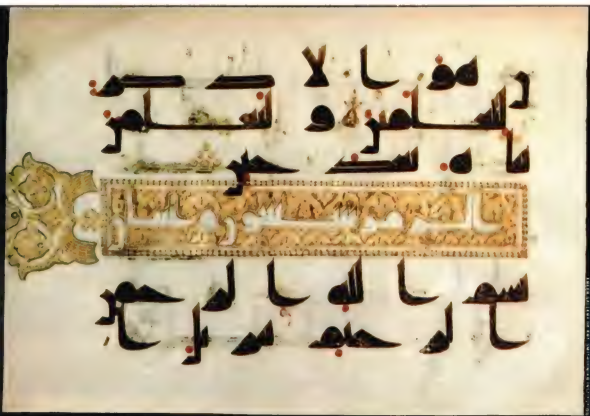 ن هو ا لا ذكر
للعلمين و لتعلمن
نبا ه بعد حين
الزمر سبعون
بسم ا لله ا لرحمن
ا لر حيم تنزيل ا